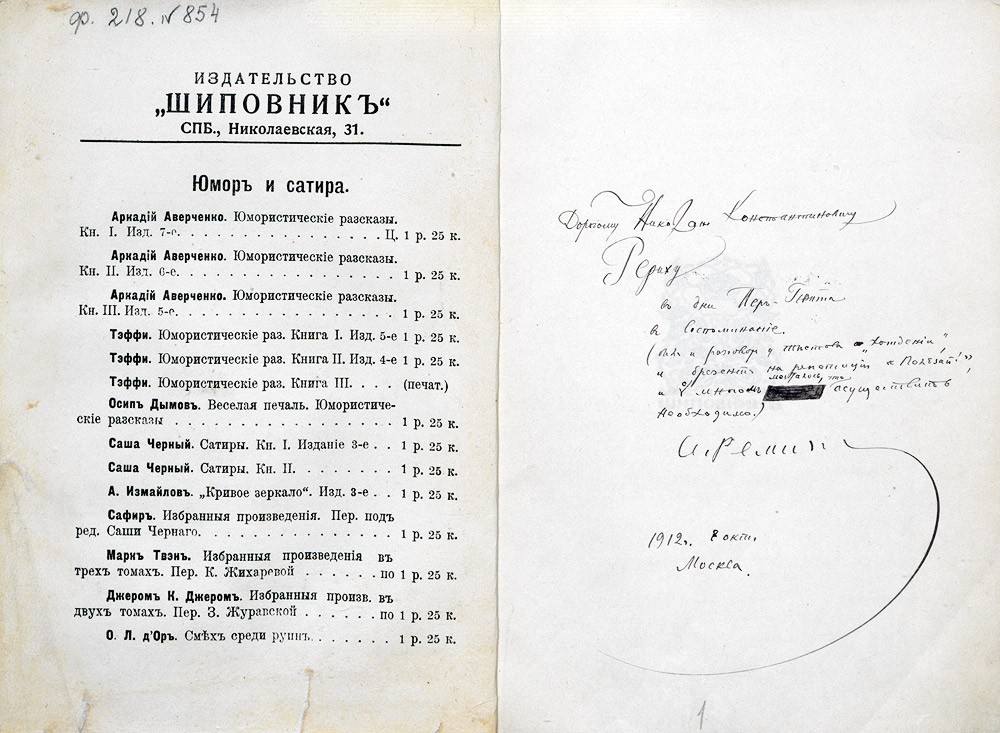 ф. 218. № 854
ИЗДАТЕЛЬСТВО
„ШИПОВНИКЪ“
СПБ., Николаевская, 31.
Юморъ и сатира.
Аркадій Аверченко. Юмористическіе разсказы.
Кн. I. Изд. 7-е. . . . . . . . . . . . . . . . Ц. 1 р. 25 к.
Аркадій Аверченко. Юмористическіе разсказы.
Кн. II. Изд. 6-е. . . . . . . . . . . . . . . . . 1 р. 25 к.
Аркадій Аверченко. Юмористическіе разсказы.
Кн. III. Изд. 5-е. . . . . . . . . . . . . . . . . 1 р. 25 к.
Тэффи. Юмористическіе раз. Книга I. Изд. 5-е 1 р. 25 к.
Тэффи. Юмористическіе раз. Книга II. Изд. 4-е 1 р. 25 к.
Тэффи. Юмористическіе раз. Книга III. . . . (печат.)
Осипъ Дымовъ. Веселая печаль. Юмористиче-
скіе разсказы . . . . . . . . . . . . . . . . . 1 р. 25 к.
Саша Черный. Сатиры. Кн. I. Изданіе 3-е . . 1 р. 25 к.
Саша Черный. Сатиры. Кн. II. . . . . . . . 1 р. 25 к.
А. Измайловъ. „Кривое зеркало“. Изд. 3-е . . 1 р. 25 к.
Сафиръ. Избранныя произведенія. Пер. подъ
ред. Саши Чернаго. . . . . . . . . . . . . . . 1 р. 25 к.
Маркъ Твэнъ. Избранныя произведенія въ
трехъ томахъ. Пер. К. Жихаревой . . . . . . по 1 р. 25 к.
Джеромъ К. Джеромъ. Избранныя произв. въ
двухъ томахъ. Пер. З. Журавской . . . . . . по 1 р. 25 к.
О. Л. д'Оръ. Смѣхъ среди руинъ. . . . . . . 1 р. 25 к.
Дорогому Николаю Константиновичу
Рериху
въ дни Перъ-Гюнта
в воспоминаніе.
и разговор у
и на репетиции
и осуществить
необходимо.)
1912 г. 8 окт.
Москва.
1